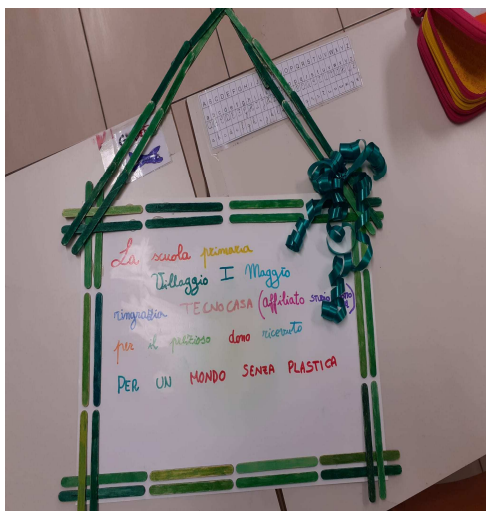 La scuola primaria
Villaggio I Maggio
ringrazia TECNOCASA (affiliato
per il prezioso dono ricevuto
PER UN MONDO SENZA PLASTICA